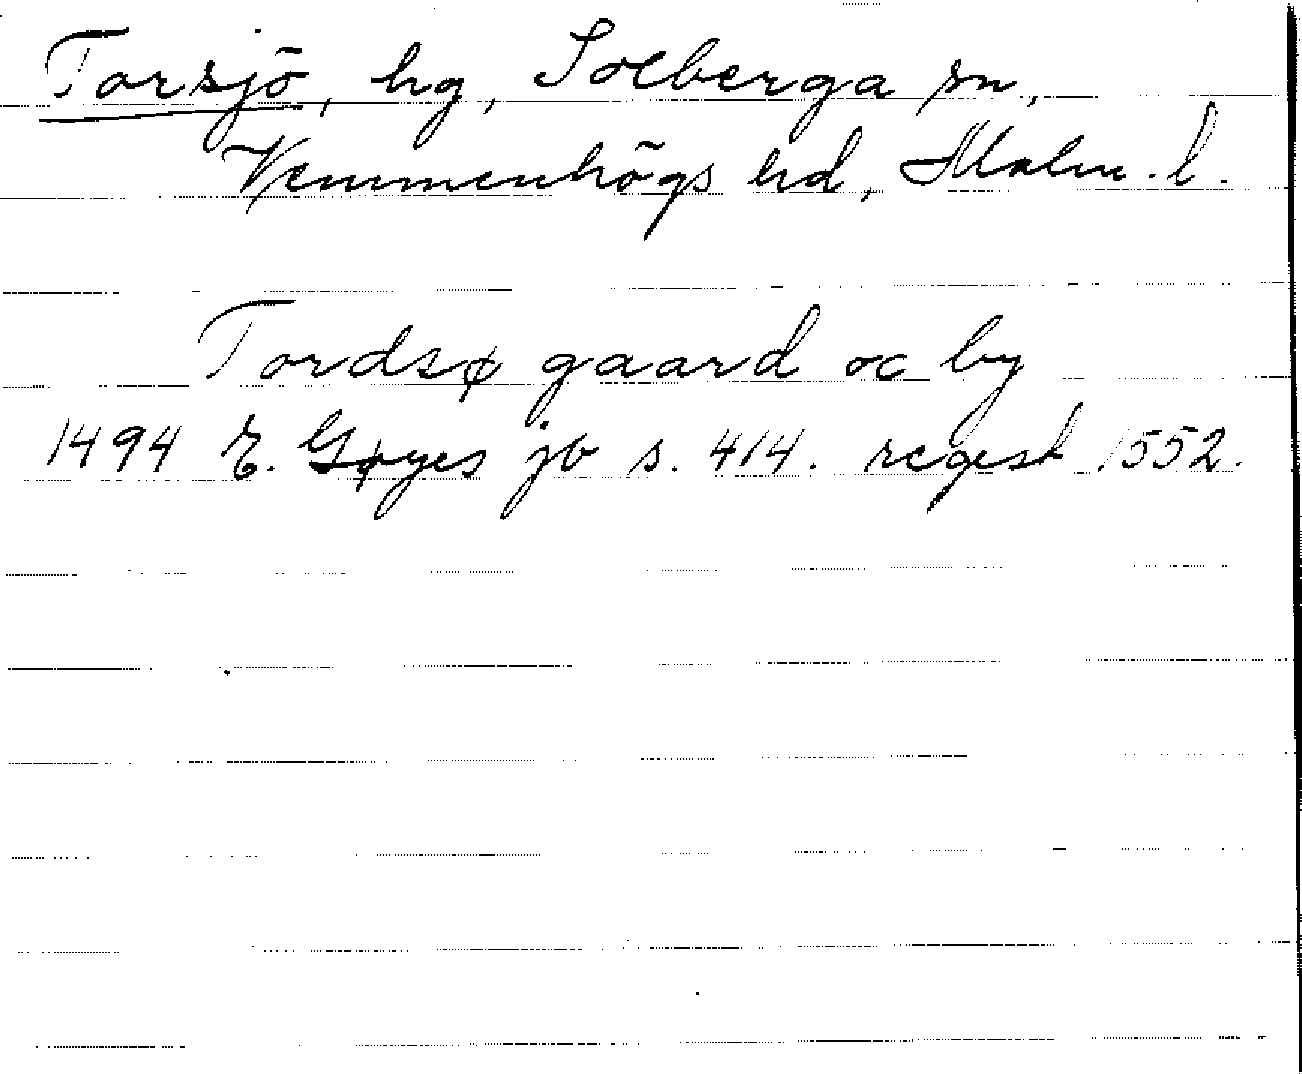 Torsjö, hg, Solberga sn,
Vemmenhögs hd, Malm. l.
Tordsø gaard oc by
1494 E. Gøyes jb s. 414. regest 1552.